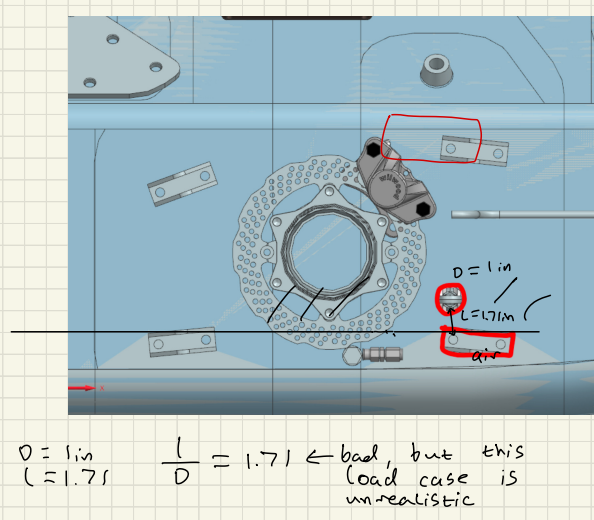 wilwood
D = 1 in
L=1.71in
air
x
D = 1in
L = 1.71
L/D = 1.71 ← bad, but this
load case is
unrealistic